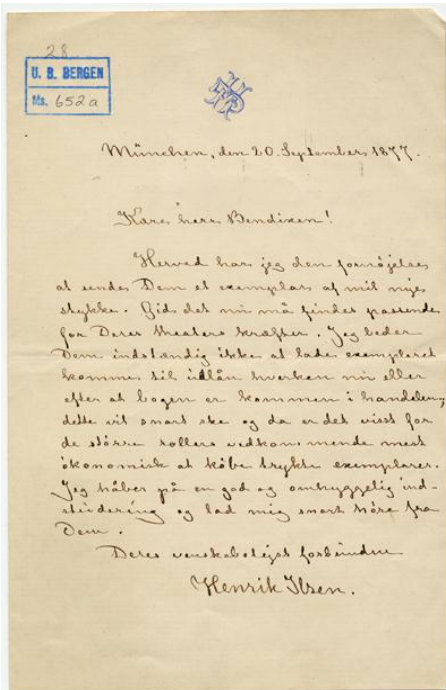 28
U. B. BERGEN
Ms. 652a
München, den 20. September 1877.
Kære herr Bendixen!
Herved har jeg den fornöjelse
at sende Dem et exemplar af mit nye
stykke. Gid det nu må findes passende
for Deres theaters kræfter. Jeg beder
Dem indstændig ikke at lade exemplaret
komme til udlån hverken nu eller
efter at bogen er kommen i handelen;
dette vil snart ske og da er det visst for
de större rollers vedkommende mest
ökonomisk at köbe trykte exemplarer.
Jeg håber på en god og omhyggelig ind-
studering og lad mig snart höre fra
Dem.
Deres venskabeligst forbundne
Henrik Ibsen.